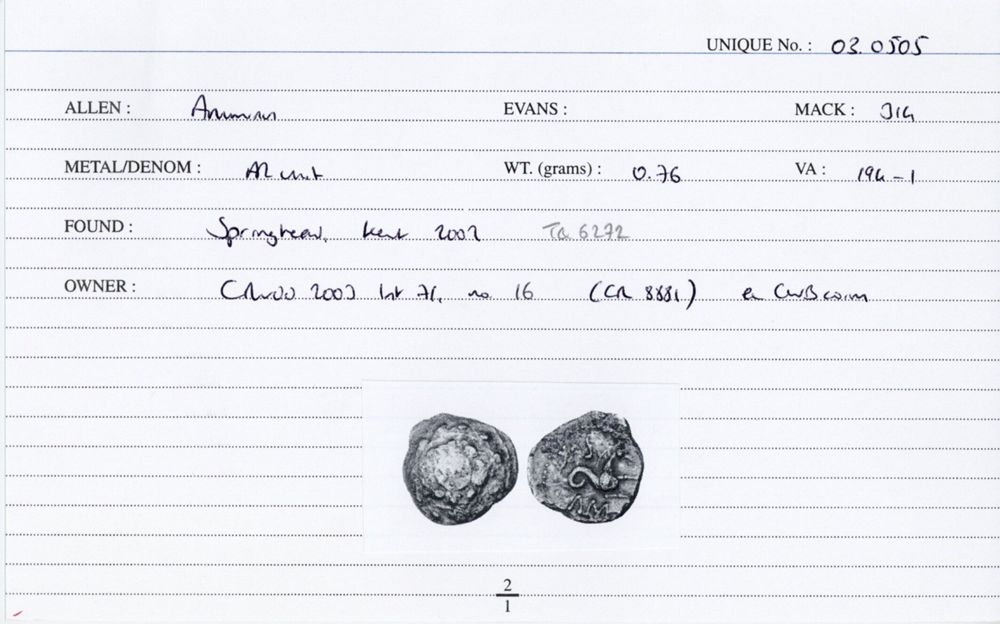 UNIQUE No. : 03.0505
ALLEN : Amminus EVANS : MACK : 314
METAL/DENOM : AR unit WT. (grams) : 0.76 VA : 194-1
FOUND : Springhead, Kent 2002 TQ 6272
OWNER : 2003 lst 71, no. 16 (CR 8881) ex CNBcoins
AM
2
1